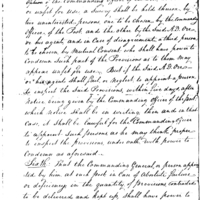 of for use a Survey shall be held thereon, by
two uninterested persons one to be chosen, by the Commanding
Officer of the Post and the other by the Said A.D. Orr
or his agent and in Case of disagreement, a third person
to be chosen by mutual Consent who shall have power to
Condemn such part of the Provisions as to them may
appear unfit for use, But if the Said A.D. Orr
or his agent shall fail or Neglect to appoint a person
to inspect the Said Provisions, within five days after
Notice being given by the Commanding Officer of the post
which notice Shall be in writing then and in that
Case, it Shall be lawful for the Commanding Officer
to appoint Such persons as he may think proper
to inspect the provisions under oath with power to
Condemn as aforesaid
Sixth That the Commanding General, or person appoin
ted by him at each post in Case of Absolute failure
or deficiency in the quantity of Provisions contracted
to be delivered and kept up, Shall have power to